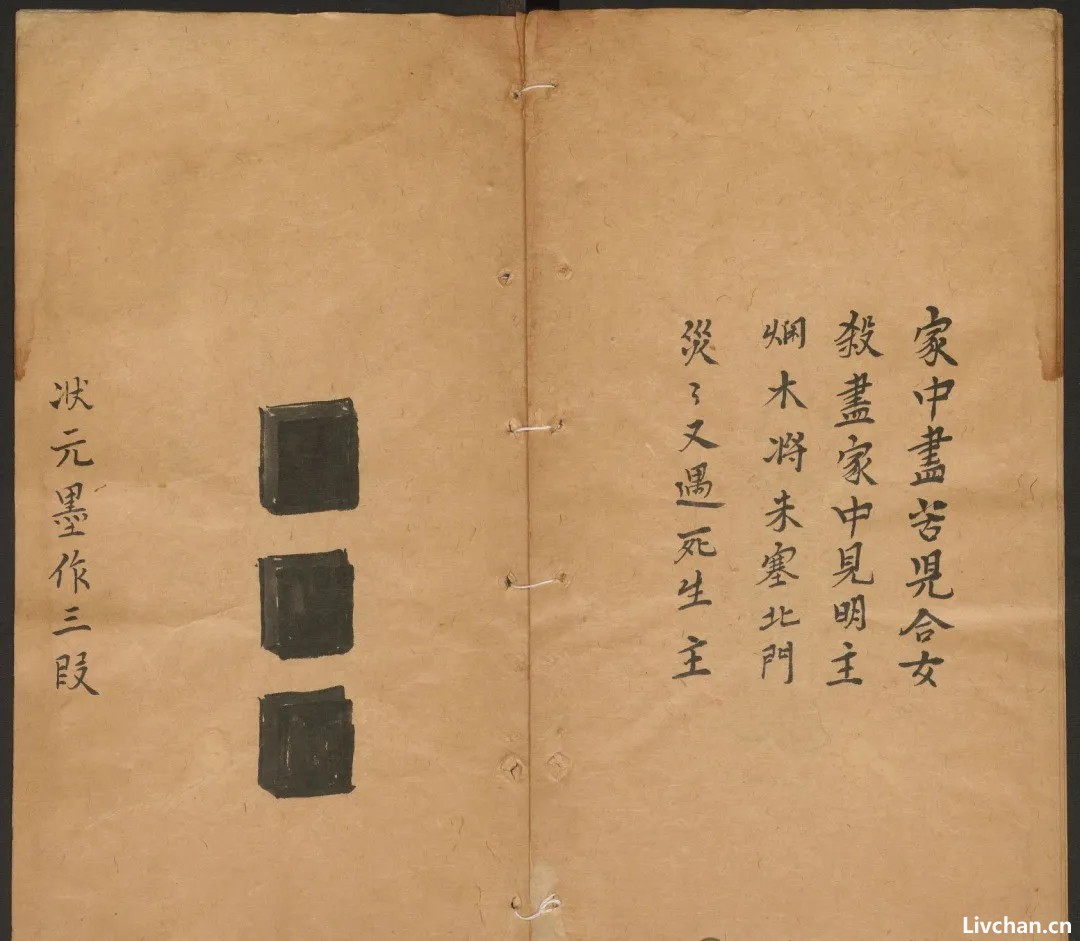 家中盡苦児合女
殺盡家中見明主
爛木将来塞北門
災々又遇死生主
状元墨作三段
Livchan.cn